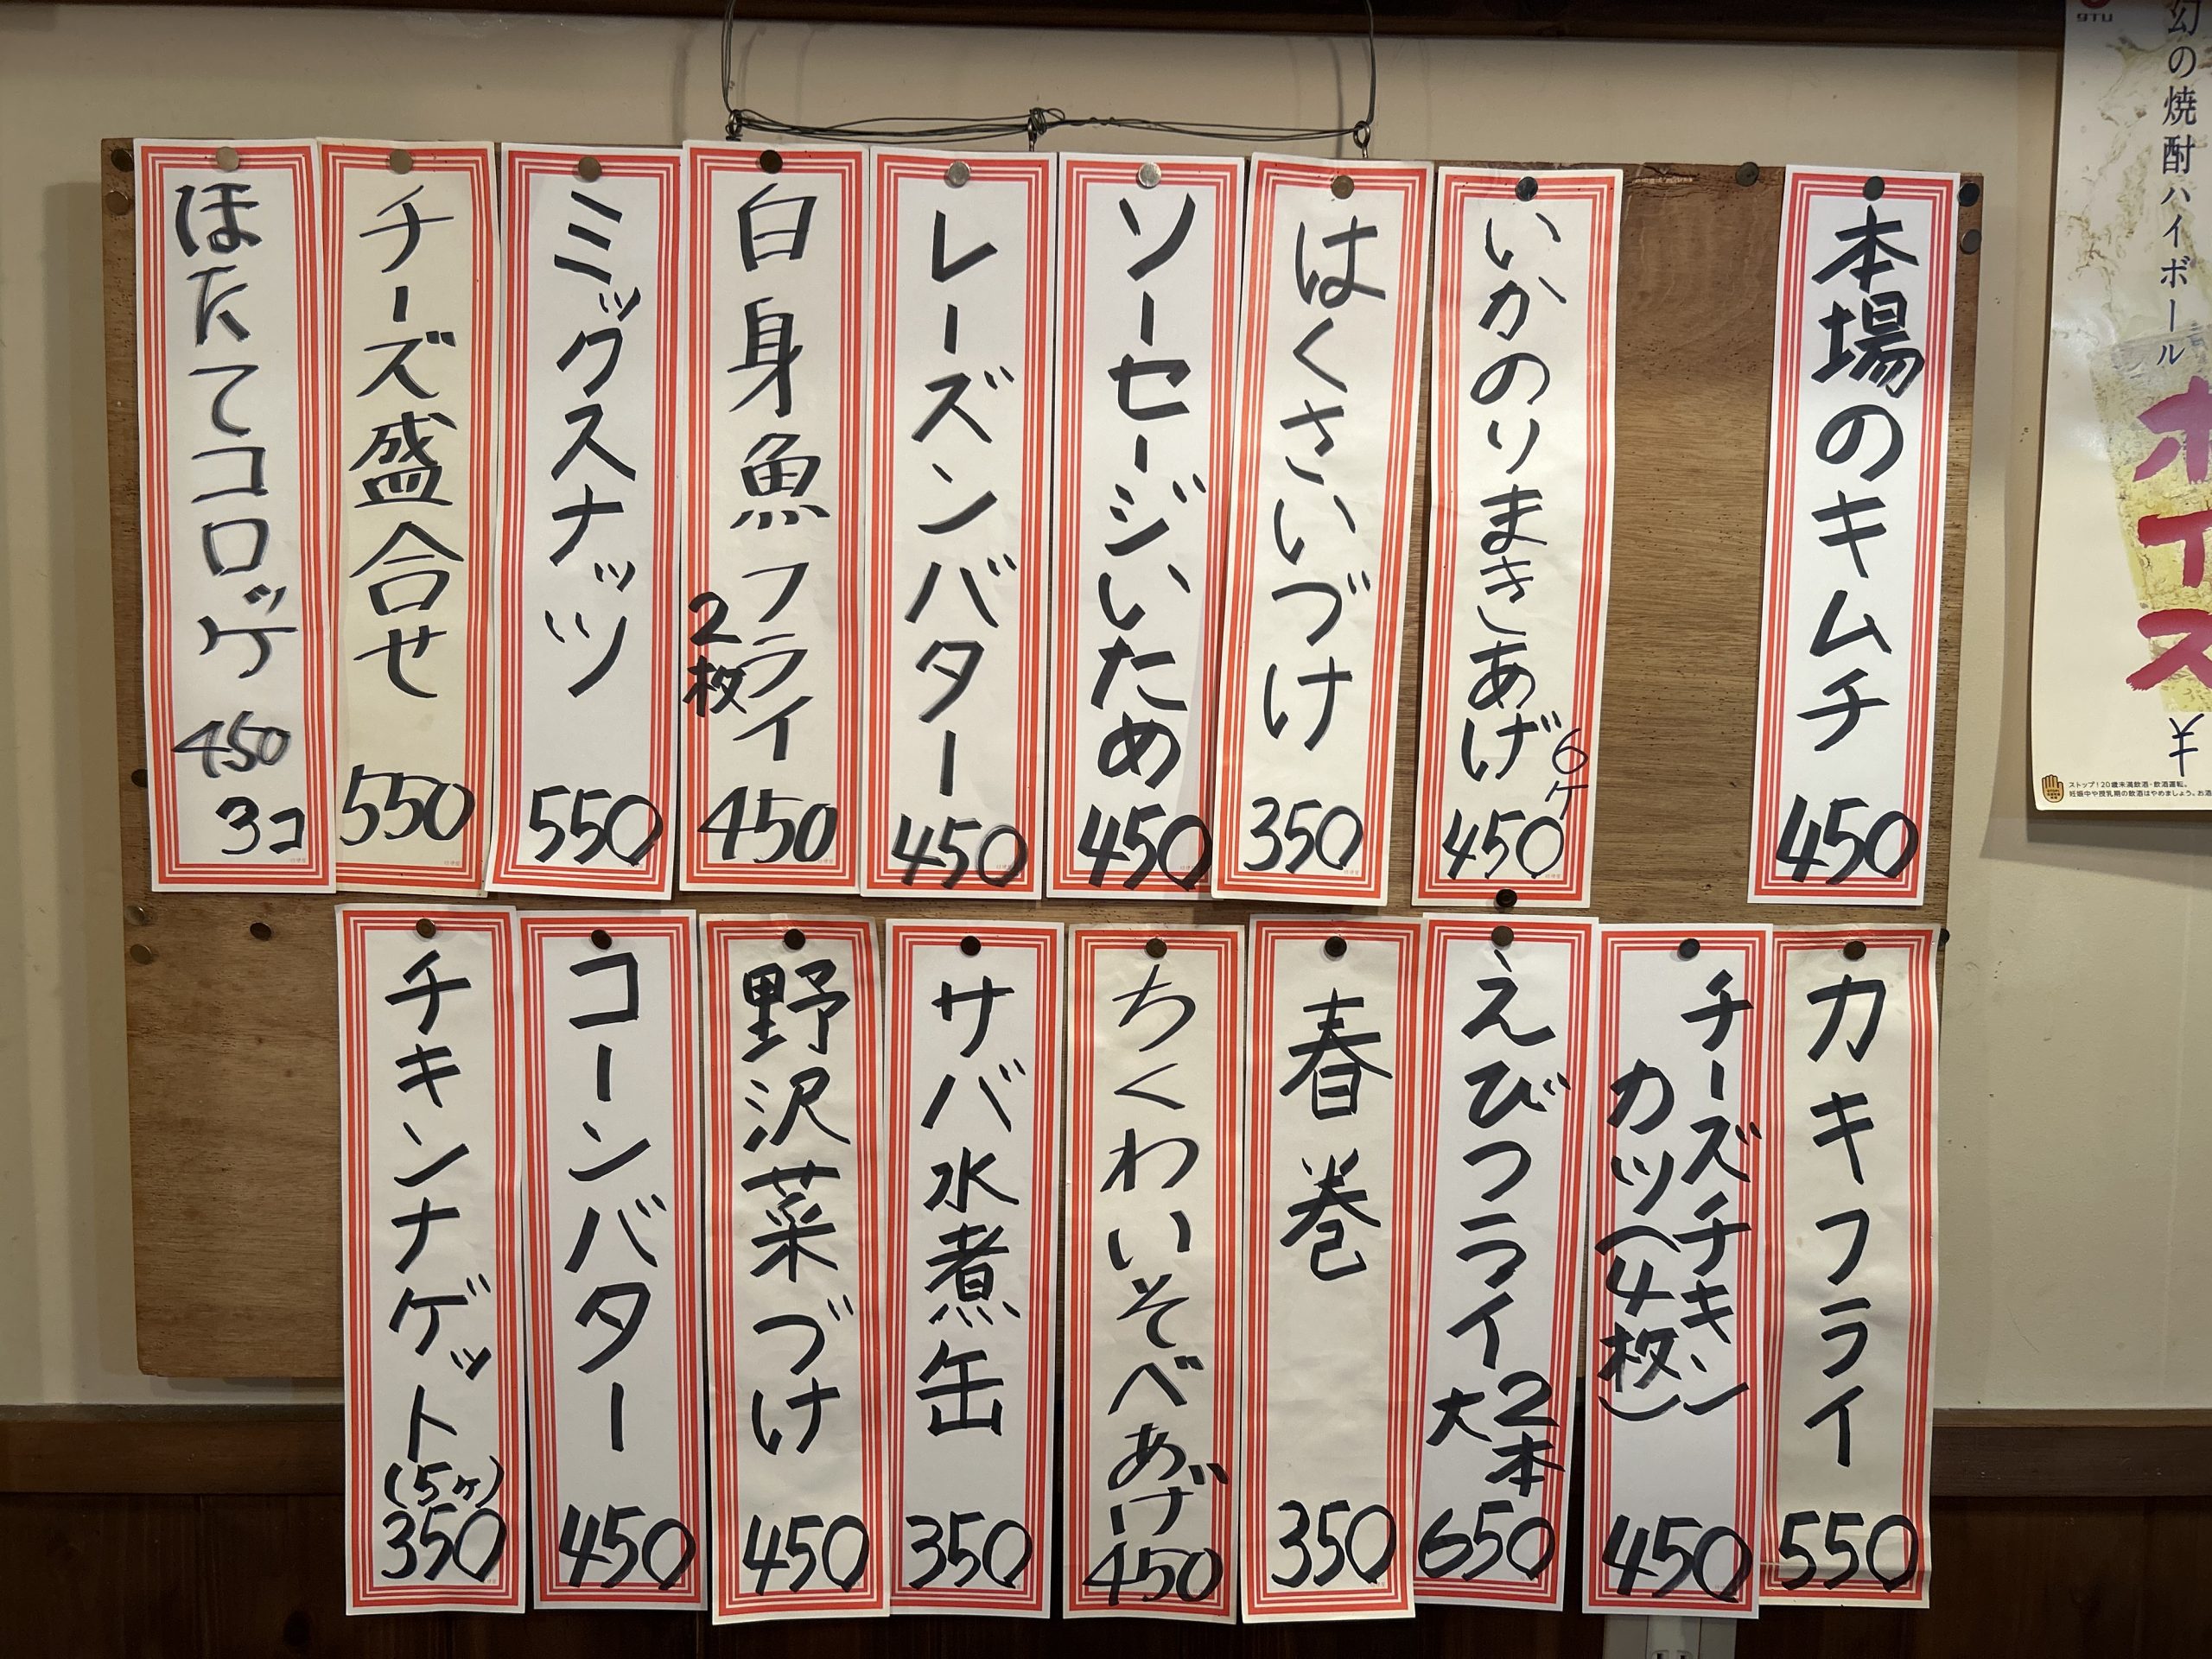 本場のキムチ
450
いかのりまきあげ
6ケ
450
はくさいづけ
350
ソーセージいため
450
レーズンバター
450
白身魚フライ
2枚
450
ミックスナッツ
550
チーズ盛合せ
550
ほたてコロッケ
450
3コ
カキフライ
550
チーズチキン
カツ(4枚)
450
えびフライ
大2本
650
春巻
350
ちくわいそべあげ
450
サバ水煮缶
350
野沢菜づけ
450
コーンバター
450
チキンナゲット
(5ケ)
350
幻の焼酎ハイボール
ホイス
¥
ストップ!20歳未満飲酒・飲酒運転。
妊娠中や授乳期の飲酒はやめましょう。お酒